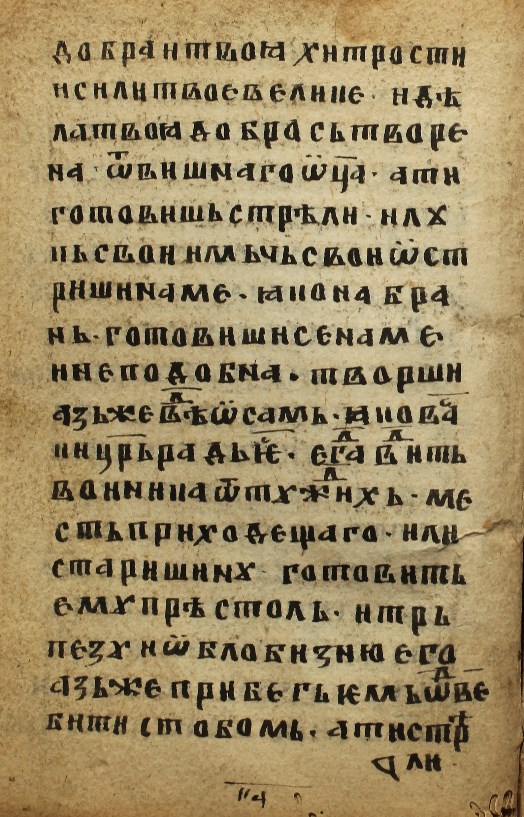 добраи твоꙗ хитрости
и сили твое велице · и дѣ
ла твоꙗ добра сьтворе
на ѿ вишнꙗго ѡц҃а · а ти
готовишь стрѣли · и лꙋ
кь свои и мьчь свои ѡст
риши на ме · ꙗко на бра
нь · готовиши се на ме
и неподобна · твориши
азь же вⷣѣ ѡсамь · ꙗко вⷭ҇а
кии цр҃ь радꙋѥ · егⷣа вⷣить
воиника ѿ тꙋжⷣихь · ме
сть приходещаго · или
старишинꙋ · готовить
емꙋ прѣстоль · и трь
пезꙋ и ѡблобизню его
азь же прибегь к҄ ѥмь ѡвⷣе
бити с тобомь · а ти стрѣ
ли ·